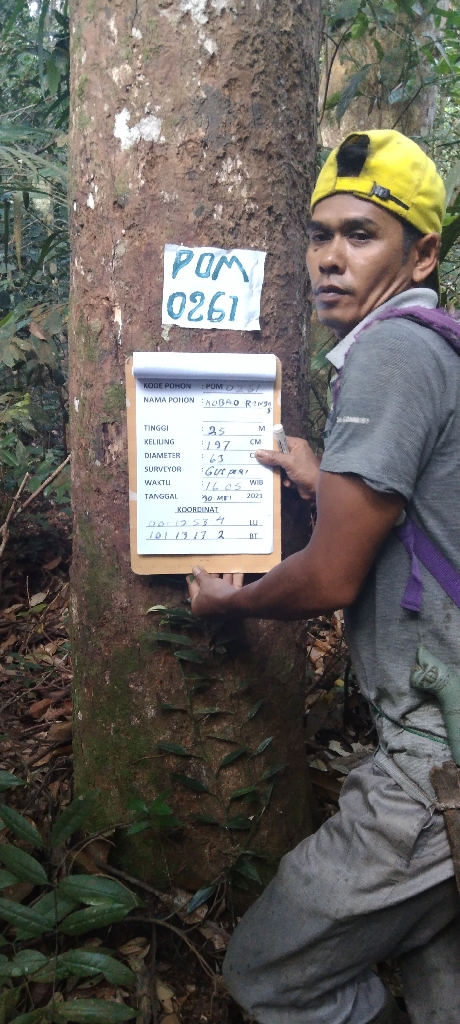 POM
0261
KODE POHON : POM 0261
NAMA POHON : KOBAO
TINGGI : 25 M
KELILING : 197 CM
DIAMETER : 63
SURVEYOR : GUSPERI
WAKTU : 16 05 WIB
TANGGAL : 30 MEI 2021
KOORDINAT
00 12 53 4 LU
101 19 17 2 BT